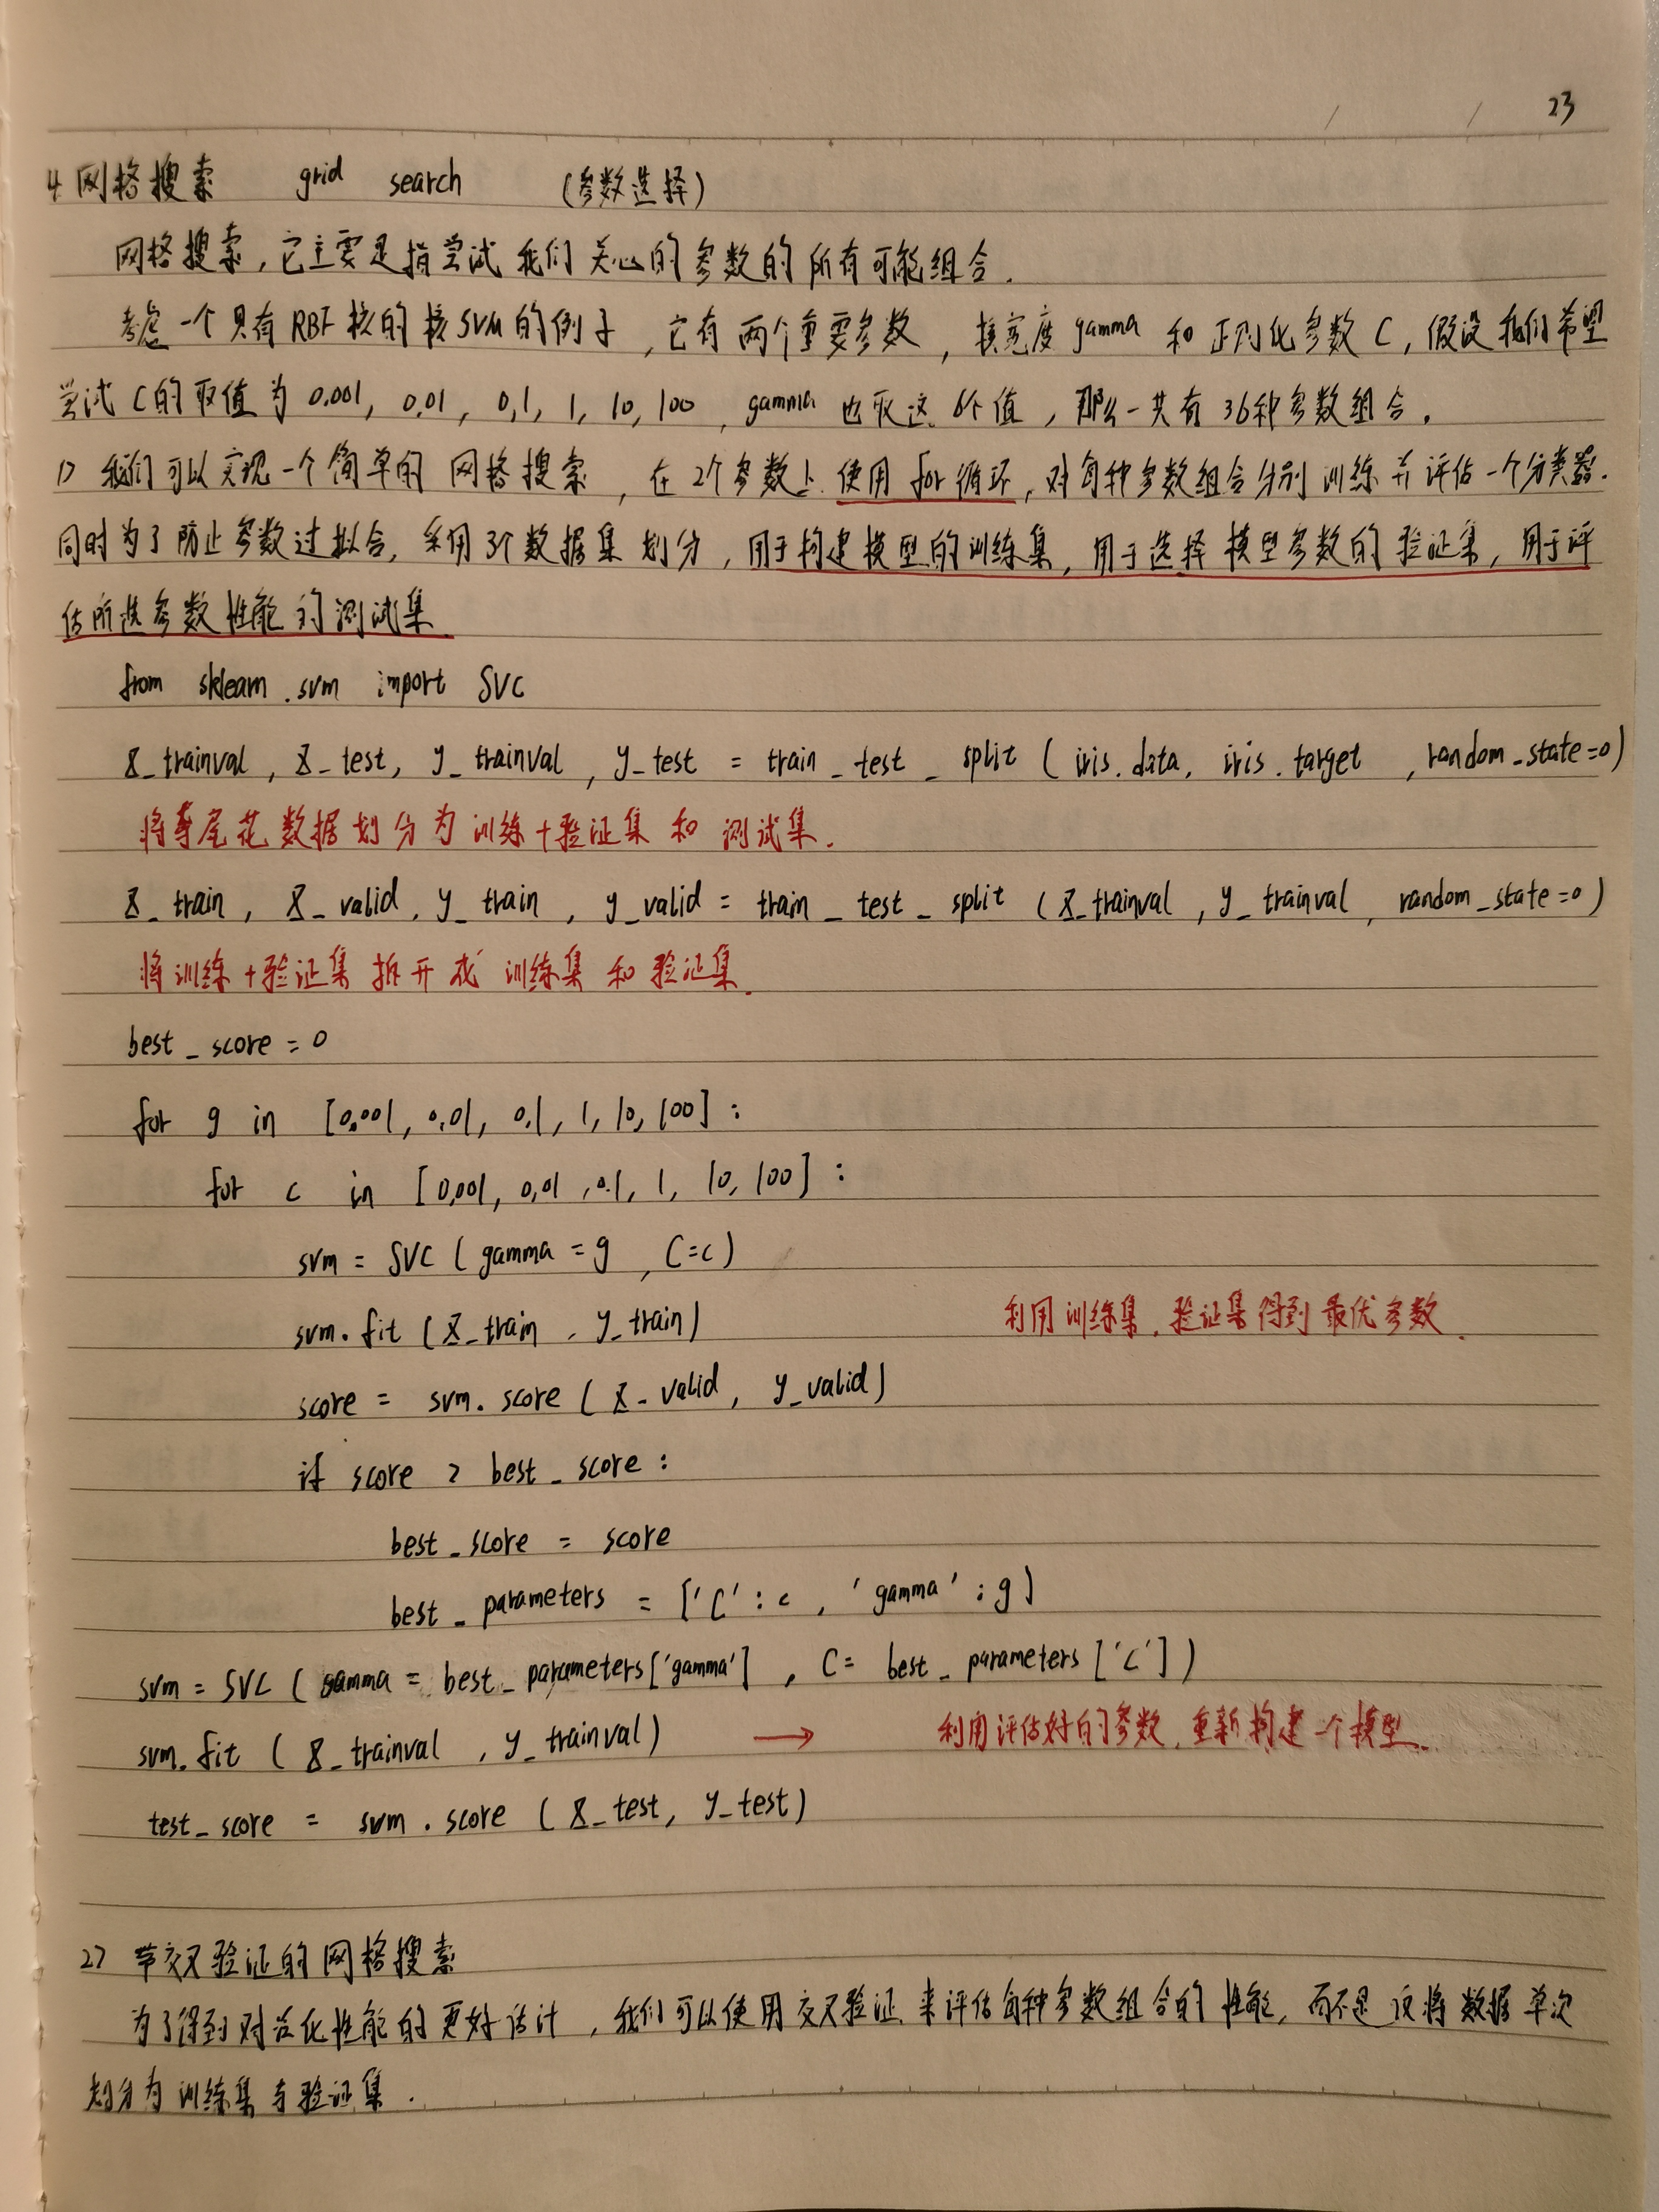 23
4. 网格搜索 grid search (参数选择)
网格搜索，它主要是指尝试我们关心的参数的所有可能组合.
考虑一个具有RBF核的核SVM的例子，它有两个重要参数，核宽度gamma和正则化参数C，假设我们希望
尝试C的取值为 0.001, 0.01, 0.1, 1, 10, 100, gamma也取这6个值，那么一共有36种参数组合.
1> 我们可以实现一个简单的网格搜索，在2个参数上使用for循环，对每种参数组合分别训练并评估一个分类器.
同时为了防止参数过拟合，采用3个数据集划分，用于构建模型的训练集，用于选择模型参数的验证集，用于评
估所选参数性能的测试集.
from sklearn.svm import SVC
X_trainval, X_test, y_trainval, y_test = train_test_split (iris.data, iris.target, random_state=0)
将鸢尾花数据划分为训练+验证集和测试集.
X_train, X_valid, y_train, y_valid = train_test_split (X_trainval, y_trainval, random_state=0)
将训练+验证集拆开成训练集和验证集.
best_score = 0
for g in [0.001, 0.01, 0.1, 1, 10, 100] :
for c in [0.001, 0.01, 0.1, 1, 10, 100] :
svm = SVC (gamma = g, C=c)
svm.fit (X_train, y_train) 利用训练集，验证集得到最优参数.
score = svm.score (X_valid, y_valid)
if score > best_score :
best_score = score
best_parameters = ['C' : c, 'gamma' : g]
svm = SVC (gamma = best_parameters['gamma'], C = best_parameters ['C'])
svm.fit (X_trainval, y_trainval) → 利用评估好的参数，重新构建一个模型.
test_score = svm.score (X_test, y_test)
2> 带交叉验证的网格搜索
为了得到对泛化性能的更好估计，我们可以使用交叉验证来评估每种参数组合的性能，而不是仅将数据单次
划分为训练集与验证集.